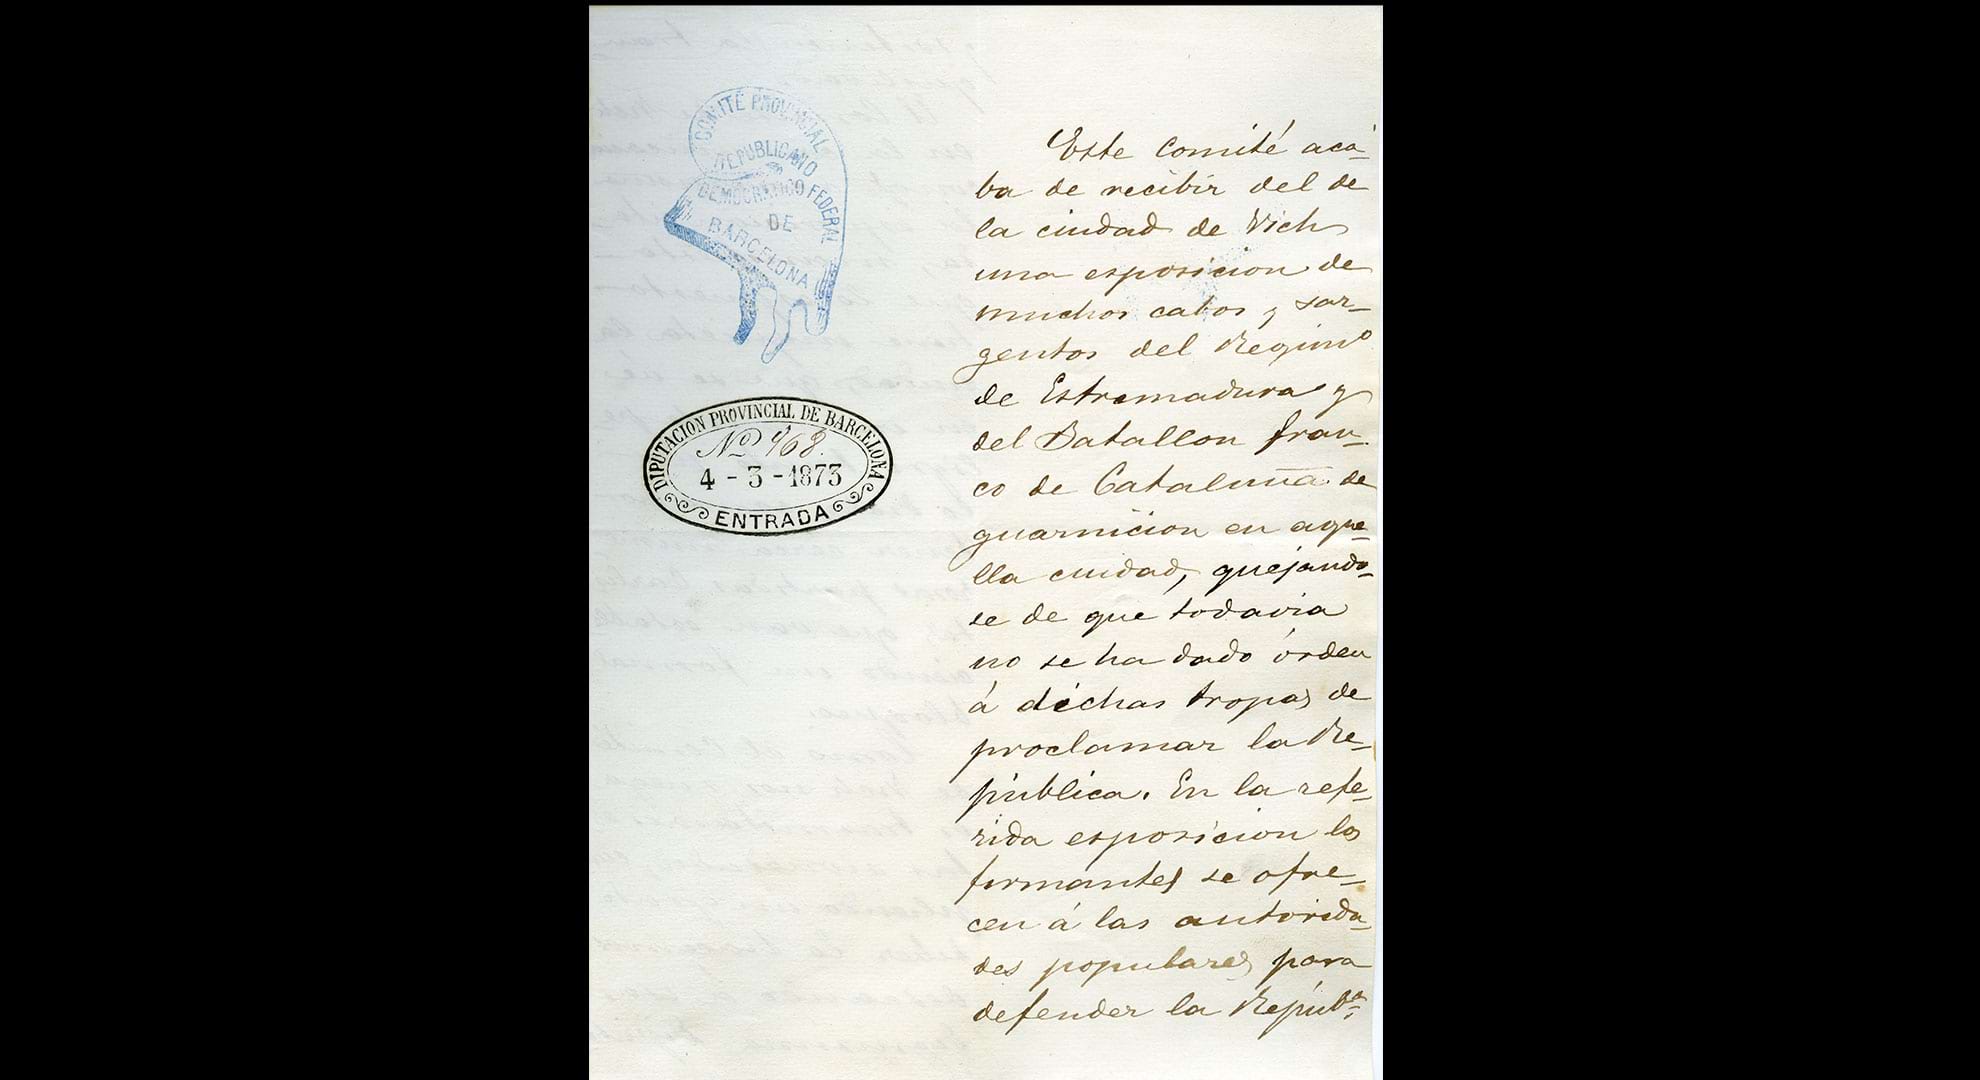 COMITÉ PROVINCIAL
REPUBLICANO
DEMOCRÁTICO FEDERAL
DE
BARCELONA
DIPUTACION PROVINCIAL DE BARCELONA
Nº 468.
4 - 3 - 1873
ENTRADA
Este Comité aca-
ba de recibir del de
la ciudad de Vich
una esposicion de
muchos cabos y sar-
gentos del Regimº
de Estremadura y
del Batallon fran-
co de Cataluña de
guarnicion en aque-
lla ciudad, quejando-
se de que todavia
no se ha dado órden
á dichas tropas de
proclamar la Re-
pública. En la refe-
rida esposicion los
firmantes se ofre-
cen á las autorida-
des populares para
defender la Repúbª